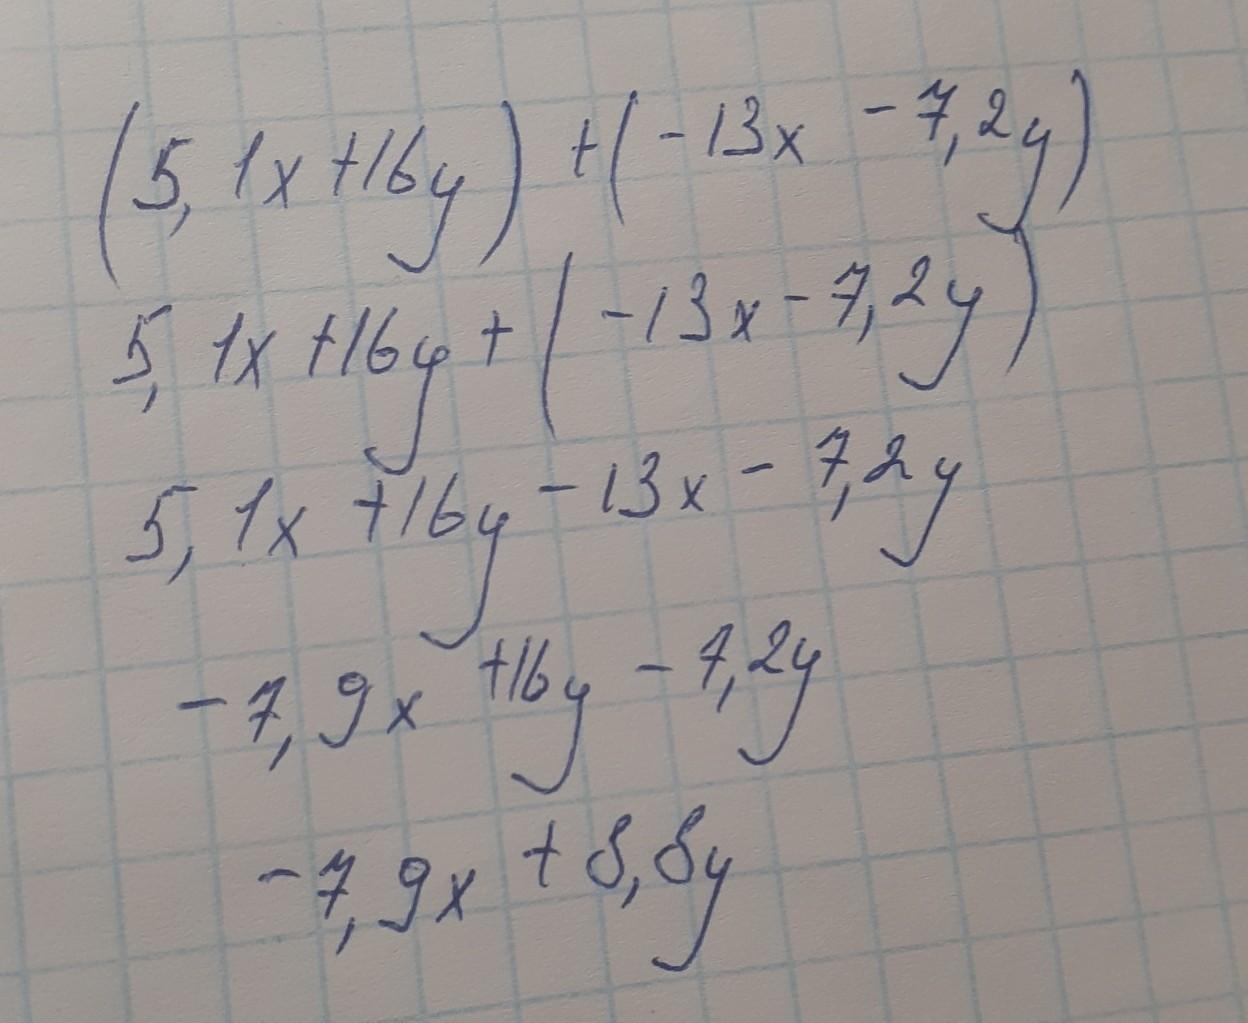 (5,1x+16y)+(-13x-7,2y)
5,1x+16y+(-13x-7,2y)
5,1x+16y-13x-7,2y
-7,9x+16y-7,2y
-7,9x+8,8y